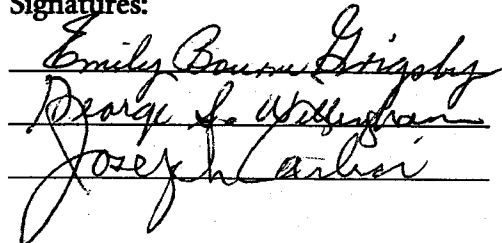 Signatures:
Emily Bourne Grigsby
George S. Willingham
Joseph